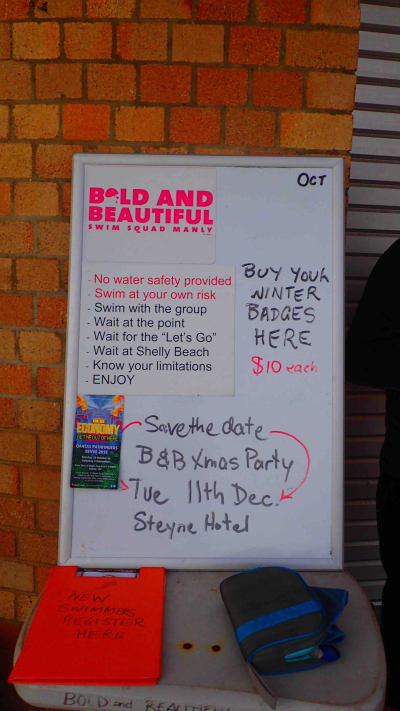 OCT
BOLD AND
BEAUTIFUL
SWIM SQUAD MANLY
- No water safety provided
- Swim at your own risk
- Swim with the group
- Wait at the point
- Wait for the "Let's Go"
- Wait at Shelly Beach
- Know your limitations
- ENJOY
BUY YOUR
WINTER
BADGES
HERE
$10 each
ECONOMY
GET ME OUT OF HERE
Save the date
B&B Xmas Party
Tue 11th Dec.
Steyne Hotel
NEW
SWIMMERS
REGISTER
HERE
BOLD and BEAUTIFUL